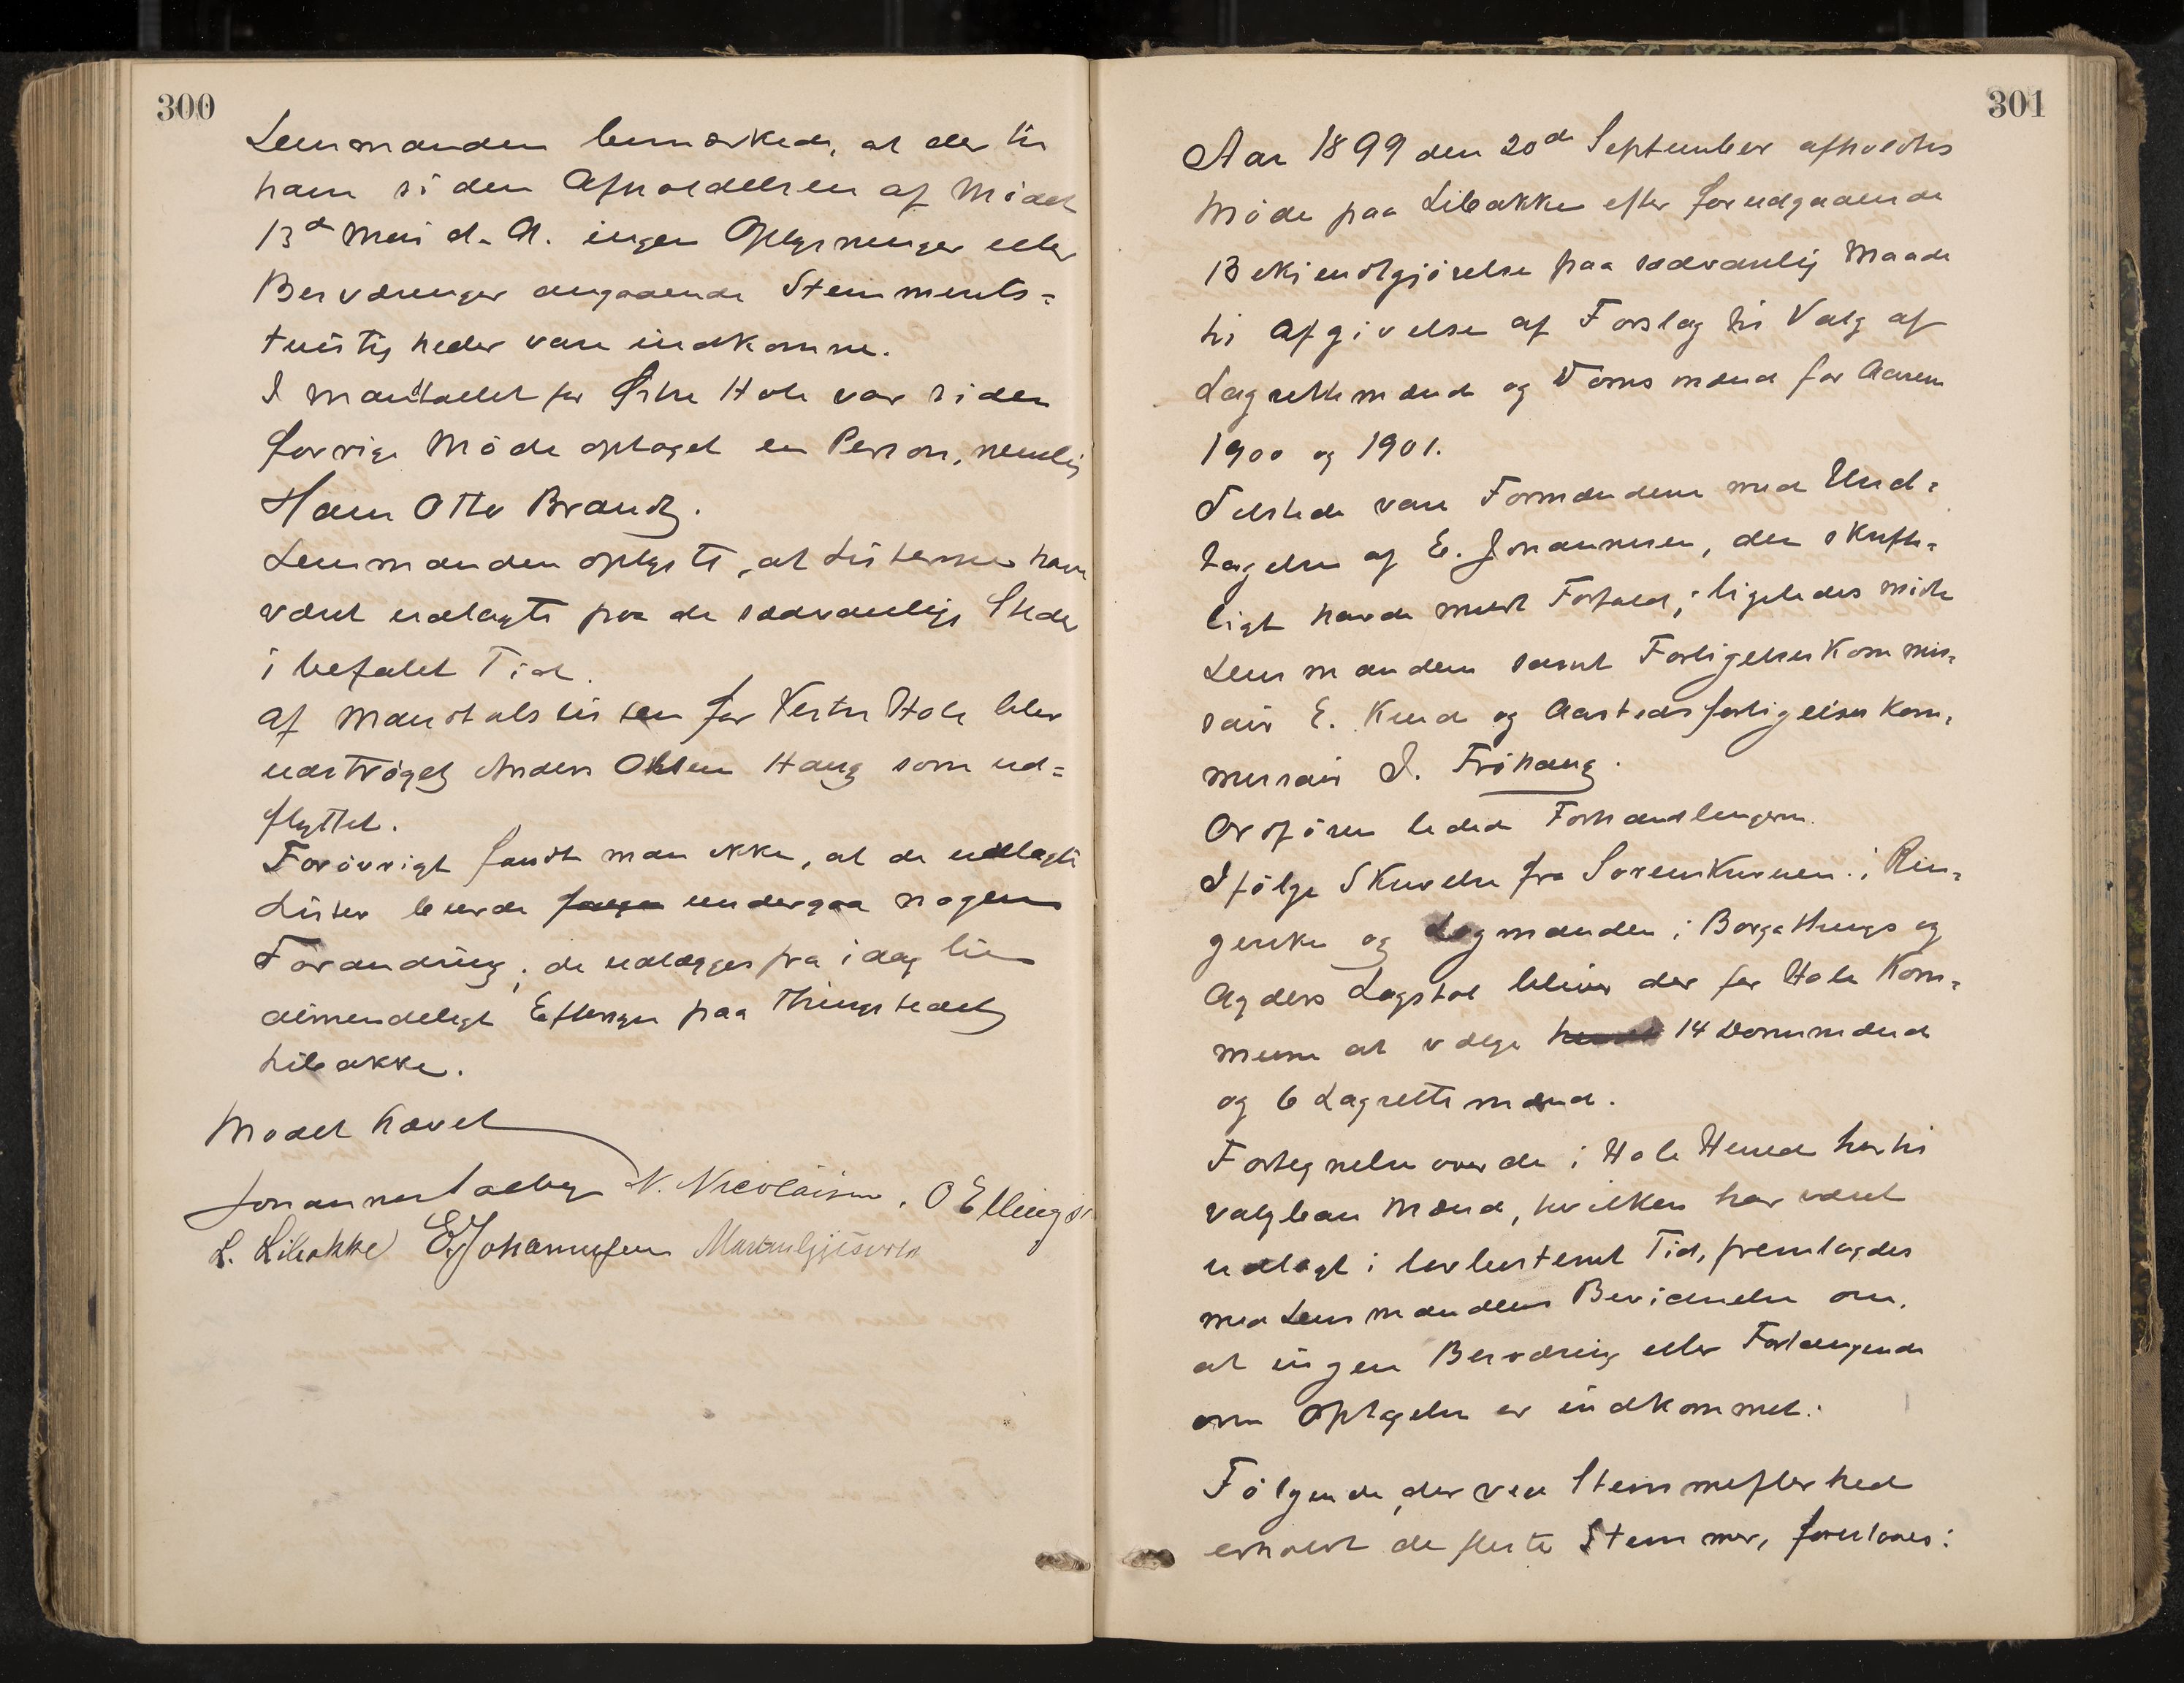 300
Lensmanden bemærkede, at der til
ham siden Afholdelsen af Mødet
13de Mai d. A. ingen Oplysninger eller
Besværinger angaaende Stemmerets-
tvistigheder vare indkomne.
I Mandtallet for Østre Hole var siden
forrige Møde optaget en Person, nemlig
Hans Otto Brandt.
Lensmanden oplyste, at Listerne have
været udlagte paa de sædvanlige Steder
i befalet Tid.
Af Mandtalslisten for Vestre Hole blev
udstrøget Anders Olsen Haug som ud=
flyttet.
Forøvrigt fandt man ikke, at de udlagte
Lister burde undergaa nogen
Forandring; de udlægges fra idag til
almindeligt Eftersyn paa Thingstedet
Libakke.
Mødet hævet
Johannes N. Nicolaisen. O Ellings
L. Libakke E. Johannesen Martin Gjesvold
301
Aar 1899 den 20de September afholdtes
Møde paa Libakke efter forudgaaende
Bekjendtgjørelse paa sædvanlig Maade
til Afgivelse af Forslag til Valg af
Lagrettemænd og Domsmænd for Aarene
1900 og 1901.
Tilstede vare Formændene med Und=
tagelse af E. Johannesen, der skrift=
ligt havde meldt Forfald; ligeledes mødte
Lensmanden samt Forligelseskommis=
sair E. Rud og Aastedsforligelseskom=
missair I. Frøhaug.
Ordføren ledede Forhandlingerne.
Ifølge Skrivelse fra Sorenskriveren i Rin=
gerike og Lagmanden i Borgathings og
Agders Lagstol bliver der for Hole Kom=
mune at vælge 14 Domsmænd
og 6 Lagrettemænd.
Fortegnelse over de i Hole Herred hertil
valgbare Mænd, hvilken har været
udlagt i lovbestemt Tid, fremlagdes
med Lensmandens Bevidnelse om,
at ingen Besværing eller Forlangende
om Optagelse er indkommet.
Følgende, der ved Stemmeflerhed
erholdt de fleste Stemmer, foreslaaes: